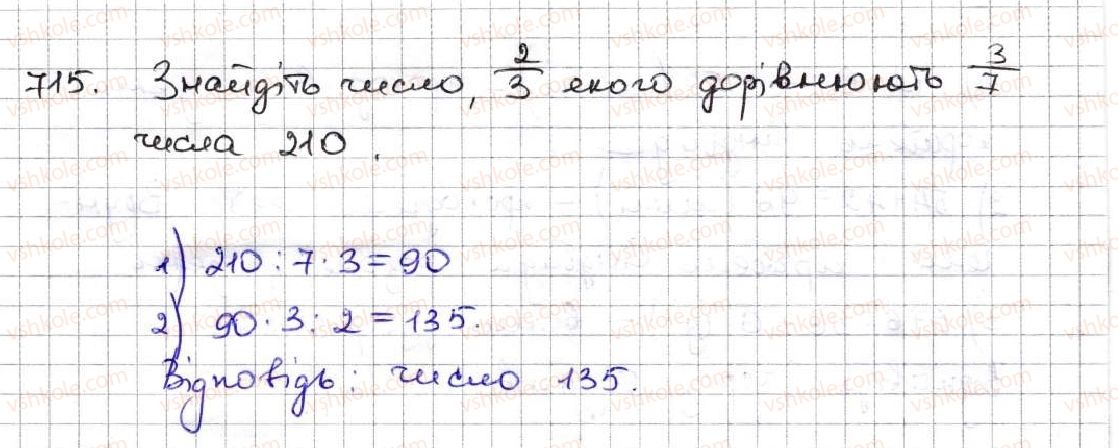 715. Знайдіть число, 2/3 якого дорівнюють 3/7
числа 210.
1) 210 : 7 · 3 = 90
2) 90 · 3 : 2 = 135.
Відповідь: число 135.